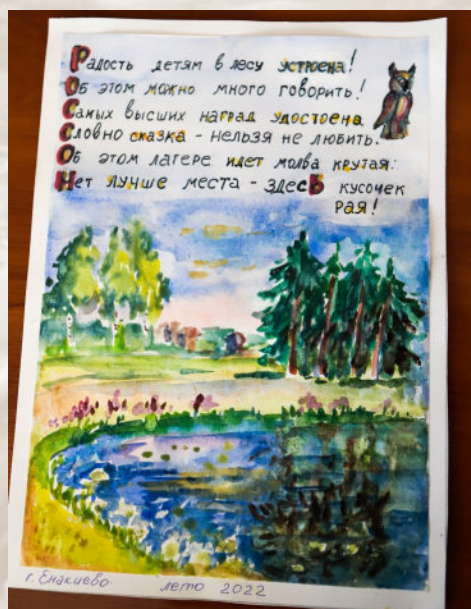 Радость детям в лесу устроена!
Об этом можно много говорить!
Самых высших наград удостоена
Словно сказка - нельзя не любить.
Об этом лагере идет молва крутая:
Нет лучше места - здесЬ кусочек
рая!
г. Енакиево лето 2022